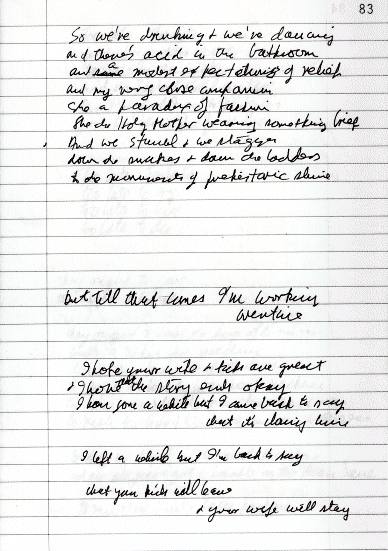 83
So we're drinking & we're dancing
and there's acid in the bathroom
and some a modest expectations of relief
and my very close companion
she a paradox of fashion
She the Holy Mother wearing something brief
And we stumble & we stagger
down the snakes & down the ladders
to the monuments of prehistoric slime
but till that comes I'm working
I hope your wife & kids are great
& I hope that the story ends okay
gone a while but I came back to say
that it's closing time
I left a while but I'm back to say
that your kids will leave
& your wife will stay